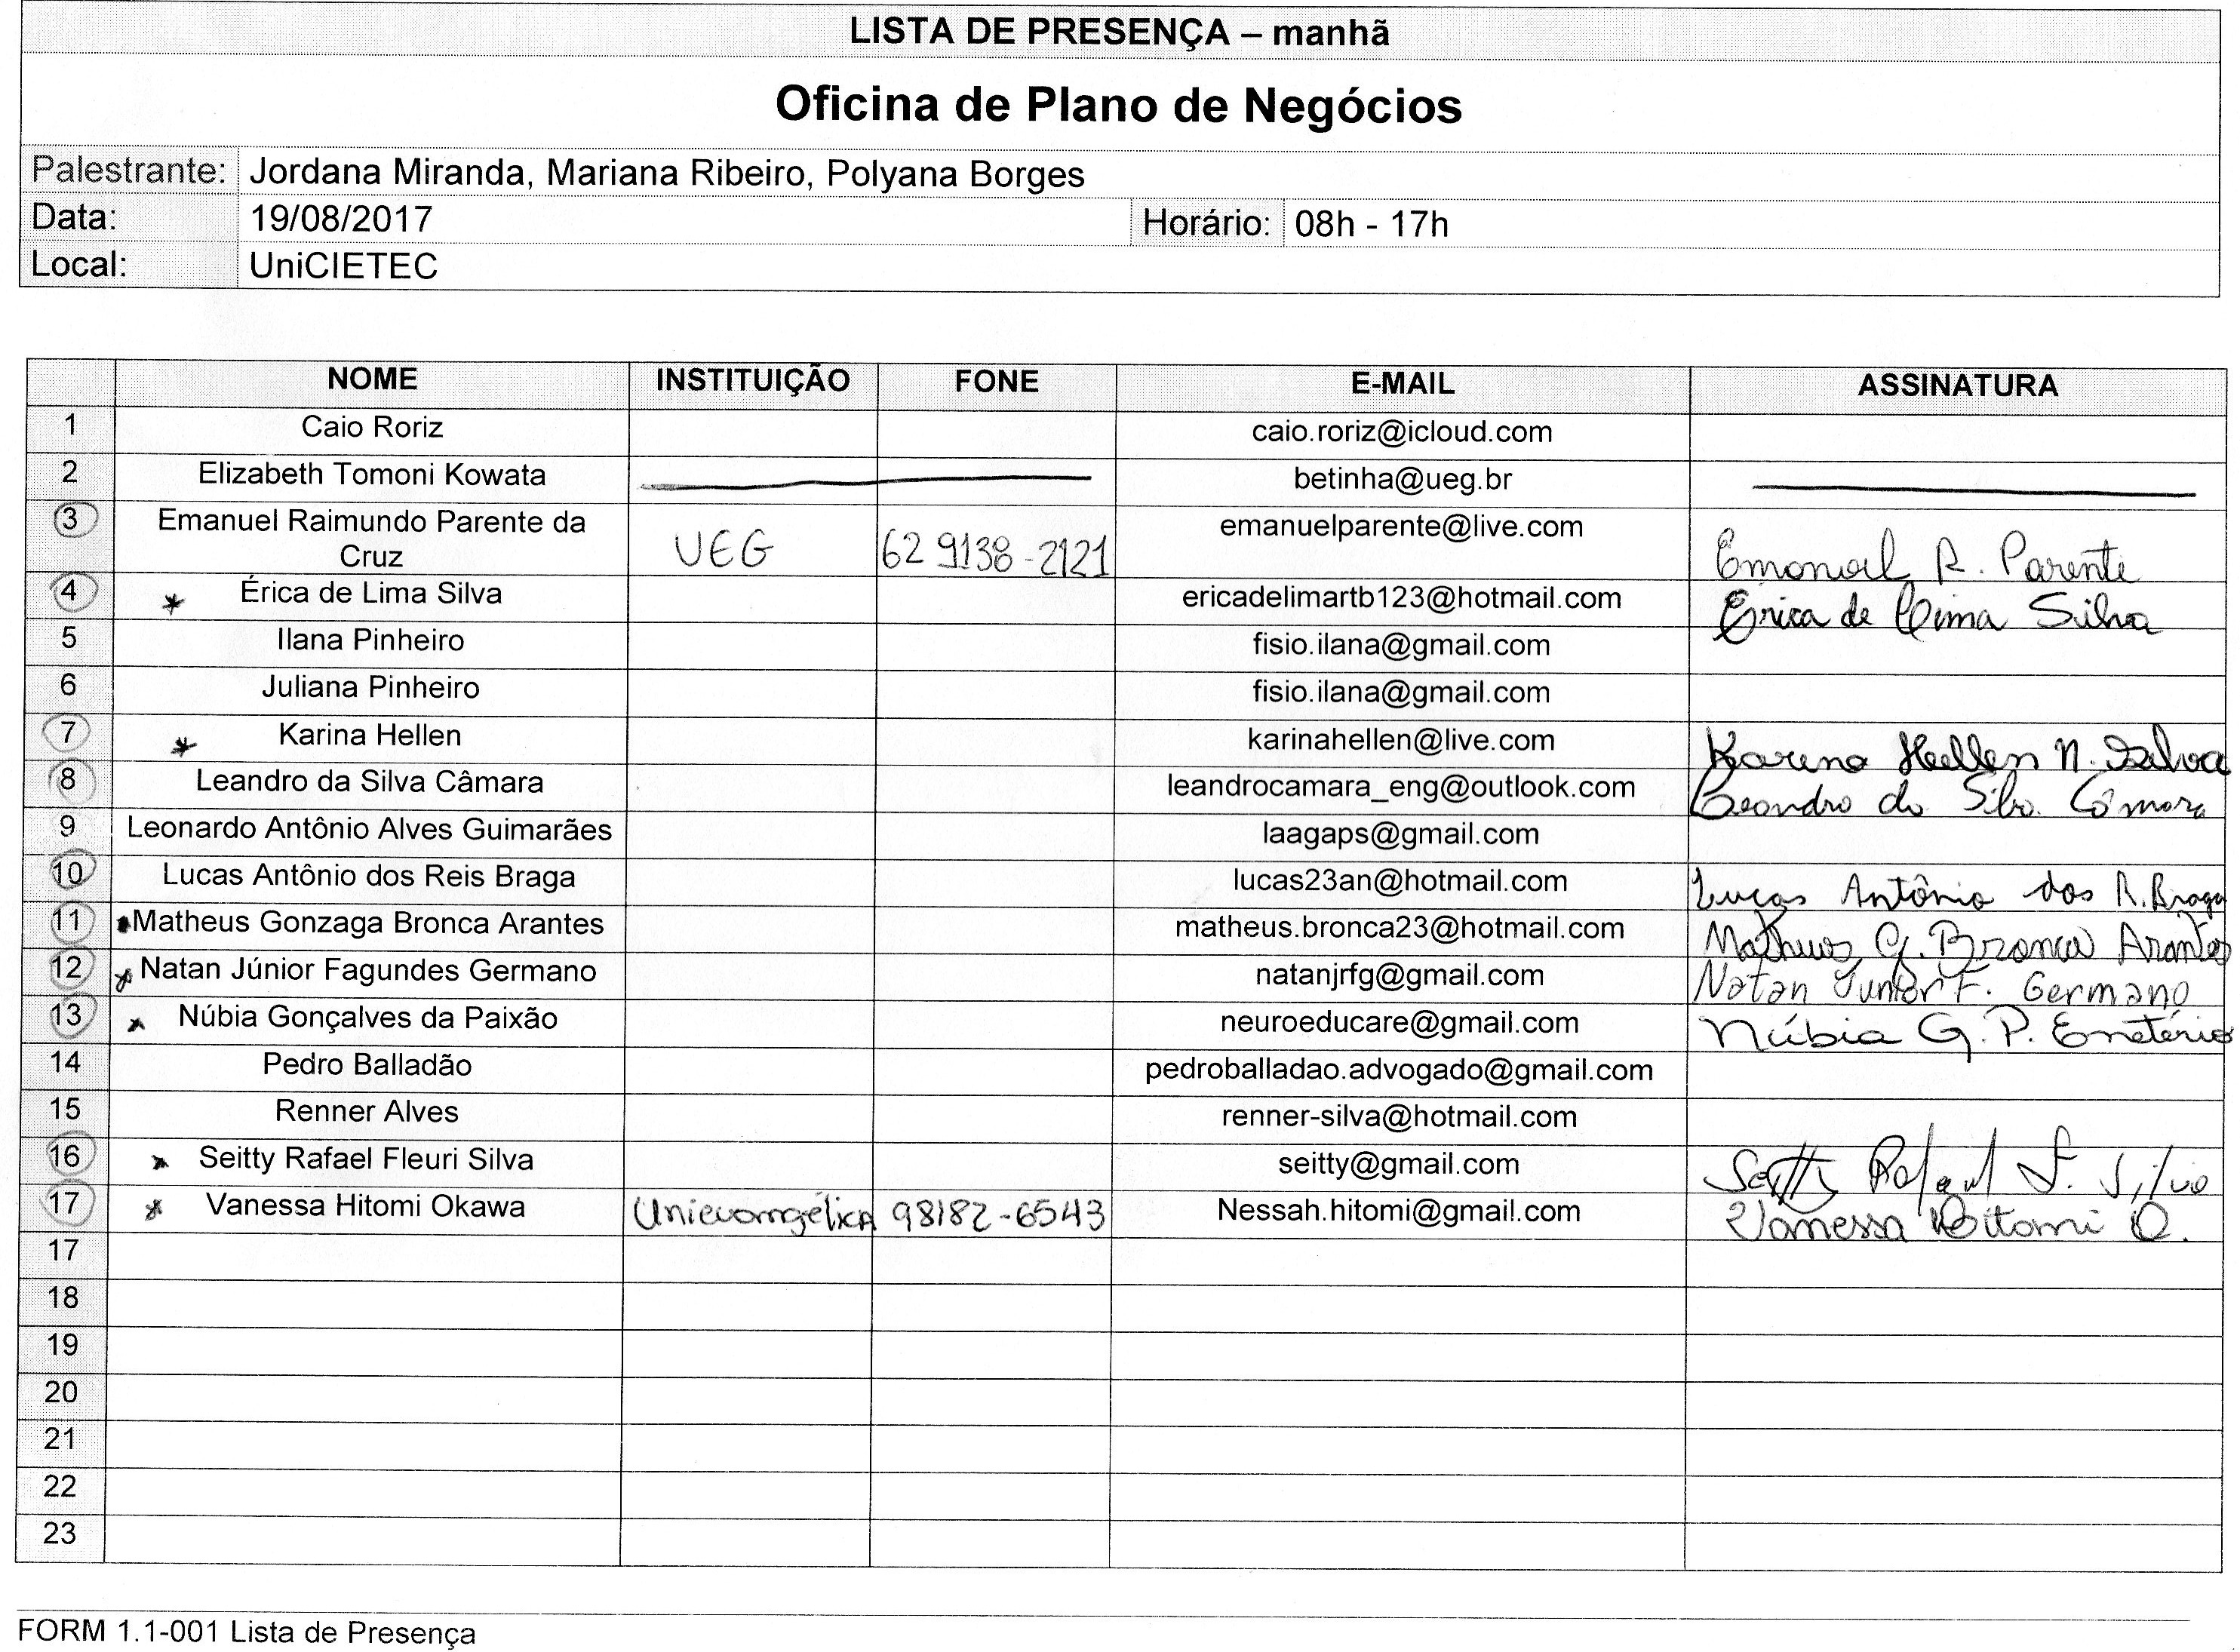 LISTA DE PRESENÇA – manhã
Oficina de Plano de Negócios
Palestrante: Jordana Miranda, Mariana Ribeiro, Polyana Borges
Data: 19/08/2017 Horário: 08h - 17h
Local: UniCIETEC
NOME INSTITUIÇÃO FONE E-MAIL ASSINATURA
1 Caio Roriz caio.roriz@icloud.com
2 Elizabeth Tomoni Kowata betinha@ueg.br
3 Emanuel Raimundo Parente da Cruz UEG 62 9138-2121 emanuelparente@live.com Emanuel R. Parente
4 * Érica de Lima Silva ericadelimartb123@hotmail.com Érica de Lima Silva
5 Ilana Pinheiro fisio.ilana@gmail.com
6 Juliana Pinheiro fisio.ilana@gmail.com
7 * Karina Hellen karinahellen@live.com Karina Hellen N. Silva
8 Leandro da Silva Câmara leandrocamara_eng@outlook.com Leandro da Silva Câmara
9 Leonardo Antônio Alves Guimarães laagaps@gmail.com
10 Lucas Antônio dos Reis Braga lucas23an@hotmail.com Lucas Antônio dos R. Braga
11 * Matheus Gonzaga Bronca Arantes matheus.bronca23@hotmail.com Matheus G. Bronca Arantes
12 * Natan Júnior Fagundes Germano natanjrfg@gmail.com Natan Junior F. Germano
13 * Núbia Gonçalves da Paixão neuroeducare@gmail.com Núbia G. P. Enetério
14 Pedro Balladão pedroballadao.advogado@gmail.com
15 Renner Alves renner-silva@hotmail.com
16 * Seitty Rafael Fleuri Silva seitty@gmail.com Seitty Rafael F. Silva
17 * Vanessa Hitomi Okawa Unievangélica 98182-6543 Nessah.hitomi@gmail.com Vanessa Hitomi O.
17
18
19
20
21
22
23
FORM 1.1-001 Lista de Presença